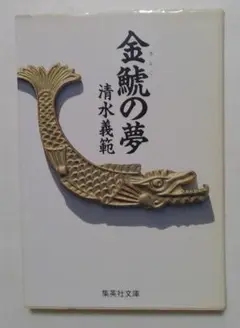 金鯱の夢
清水義範
集英社文庫